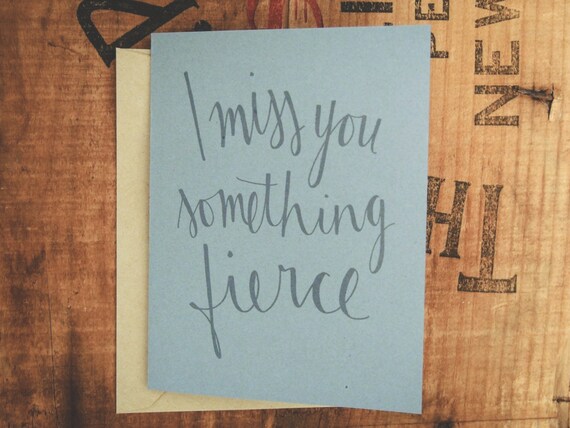 I miss you
something
fierce
NEW